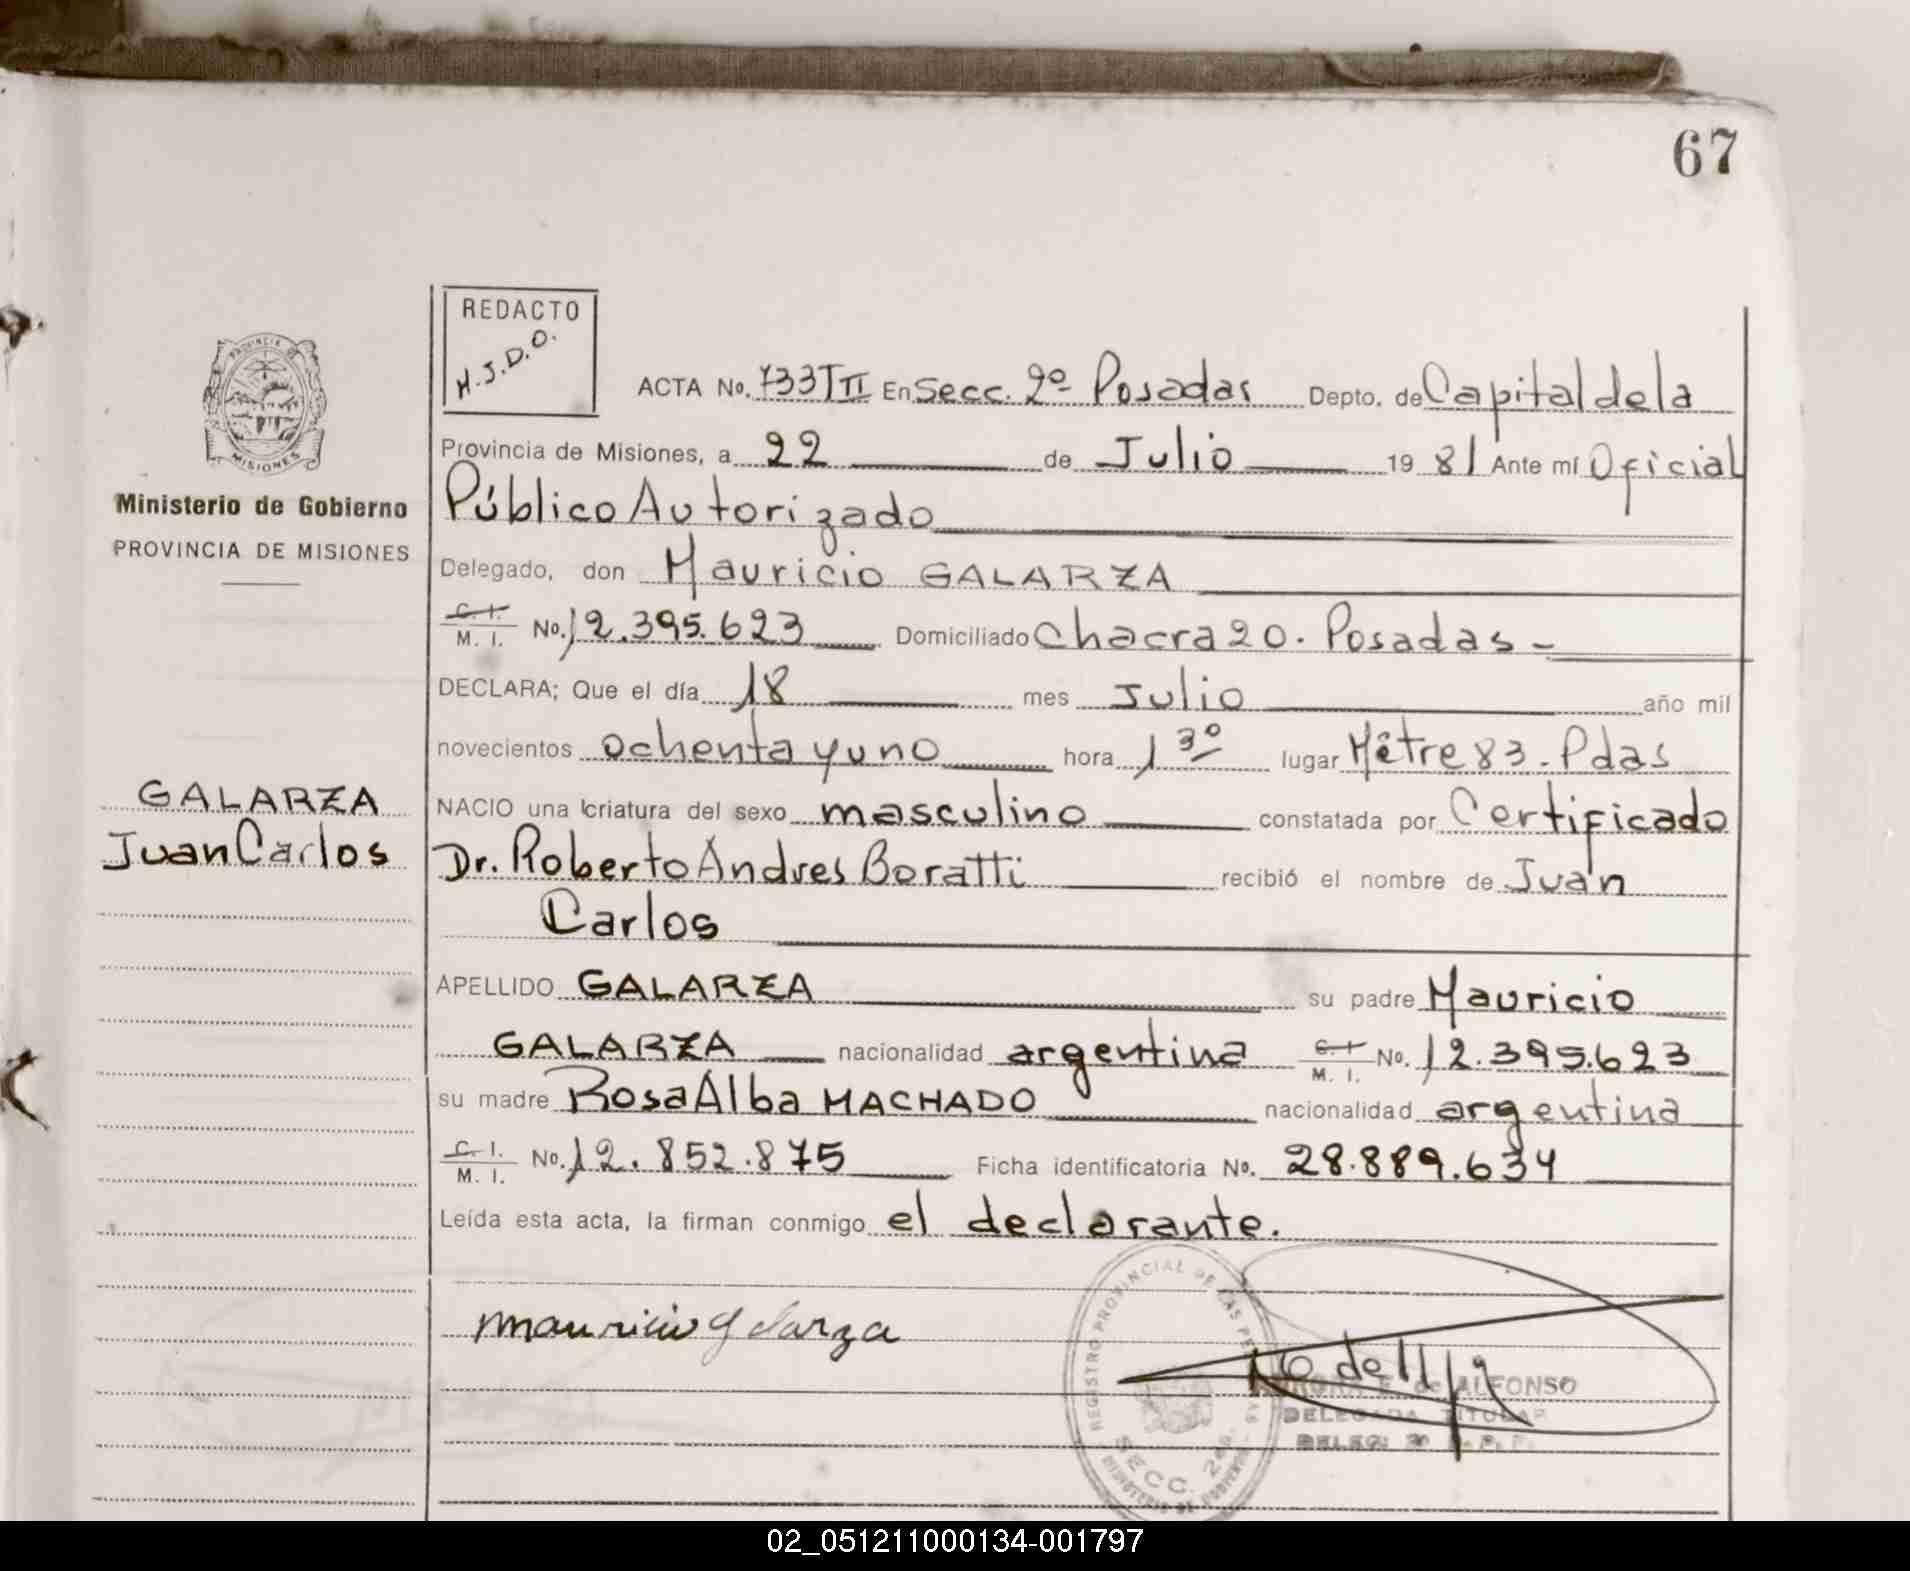 67
REDACTO
H.J.D.O.
ACTA No. 733 T II En Secc. 2º Posadas Depto. de Capital de la
Provincia de Misiones, a 22 de Julio 1981 Ante mí Oficial
Público Autorizado
Delegado, don Mauricio GALARZA
C. I. M. I. No. 12.395.623 Domiciliado Chacra 20. Posadas -
DECLARA; Que el día 18 mes Julio año mil
novecientos ochenta y uno hora 1 30 lugar Mitre 83. Pdas
NACIO una criatura del sexo masculino constatada por Certificado
Dr. Roberto Andres Boratti recibió el nombre de Juan
Carlos
APELLIDO GALARZA su padre Mauricio
GALARZA nacionalidad argentina C. I. M. I. No. 12.395.623
su madre Rosa Alba MACHADO nacionalidad argentina
C. I. M. I. No. 12.852.875 Ficha identificatoria No. 28.889.634
Leída esta acta, la firman conmigo el declarante.
mauricio galarza
PROVINCIA DE
MISIONES
Ministerio de Gobierno
PROVINCIA DE MISIONES
GALARZA
Juan Carlos
REGISTRO PROVINCIAL DE LAS PERSONAS
SECC. 2da.
E. de ALFONSO
DELEGADA TITULAR
02_051211000134-001797